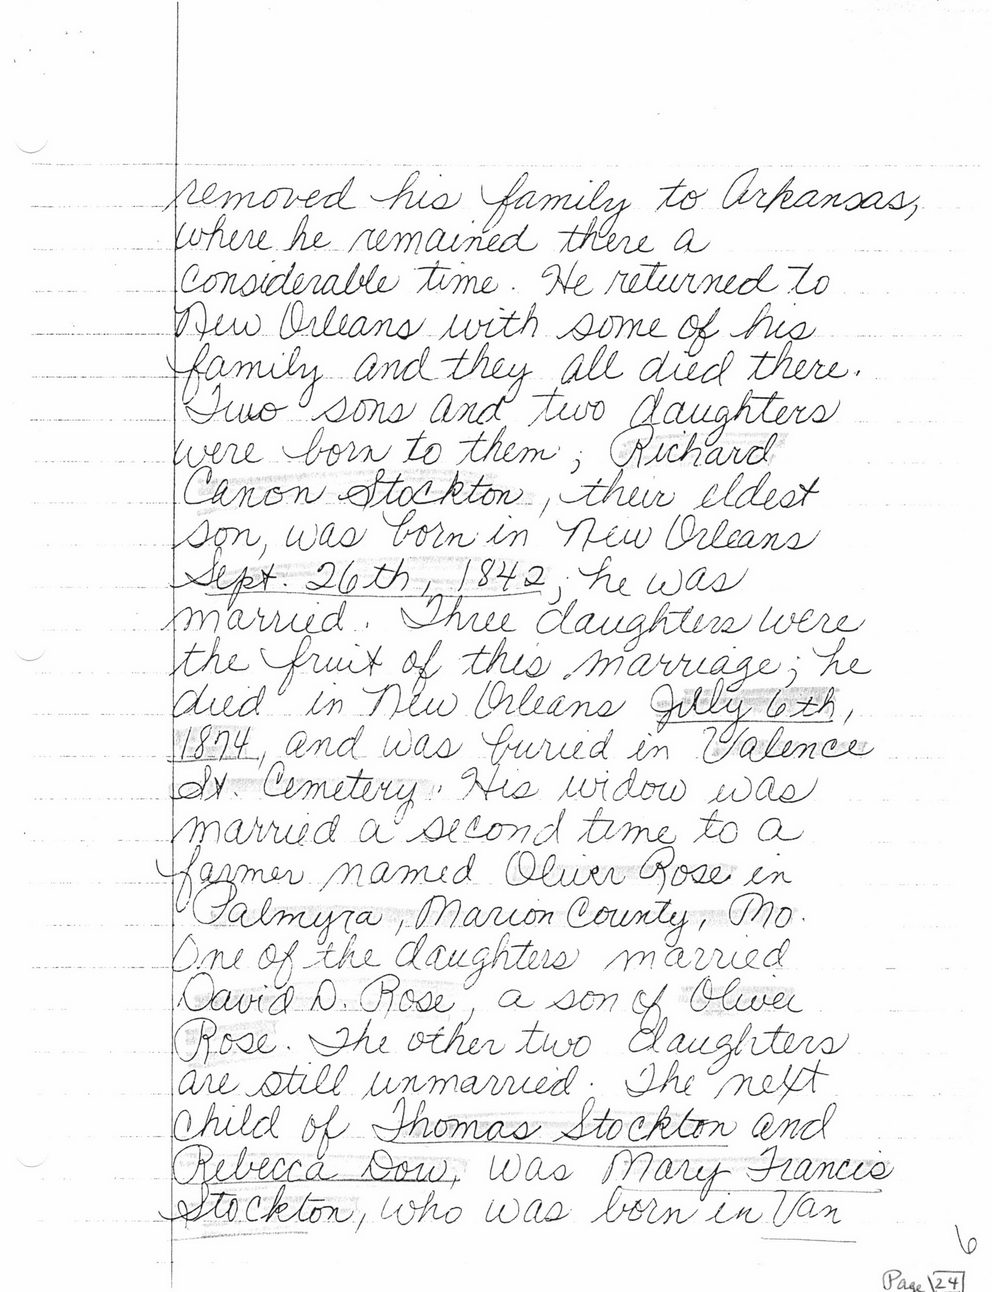 removed his family to Arkansas,
where he remained there a
considerable time. He returned to
New Orleans with some of his
family and they all died there.
Two sons and two daughters
were born to them; Richard
Canon Stockton, their eldest
son, was born in New Orleans
Sept. 26th, 1842; he was
married. Three daughters were
the fruit of this marriage; he
died in New Orleans July 6th,
1874, and was buried in Valence
St. Cemetery. His widow was
married a second time to a
farmer named Oliver Rose in
Palmyra, Marion County, Mo.
One of the daughters married
David D. Rose, a son of Oliver
Rose. The other two daughters
are still unmarried. The next
child of Thomas Stockton and
Rebecca Dow, was Mary Francis
Stockton, who was born in Van
6
Page 24